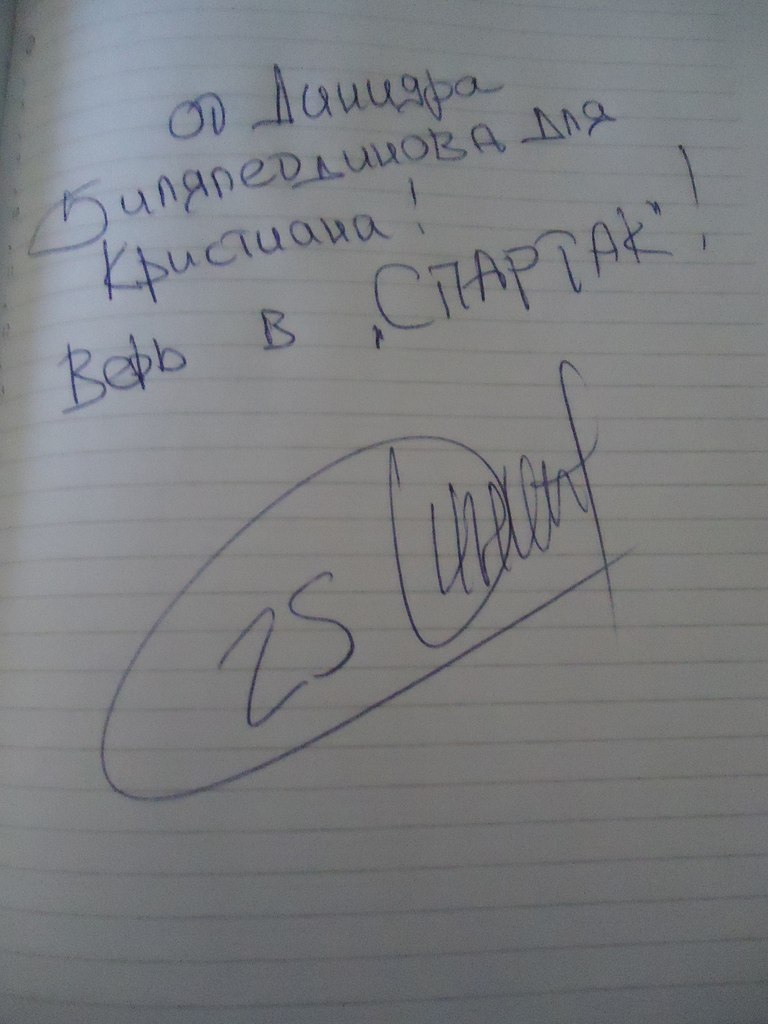 от Динияра
Билялетдинова для
Кристиана!
Верь в „СПАРТАК"!
25